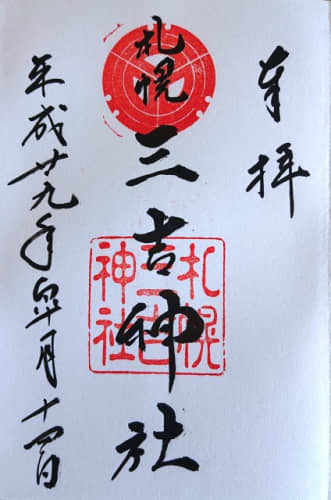 奉拝
札幌
三吉神社
札幌
三吉
神社
平成廿九年皐月十四日